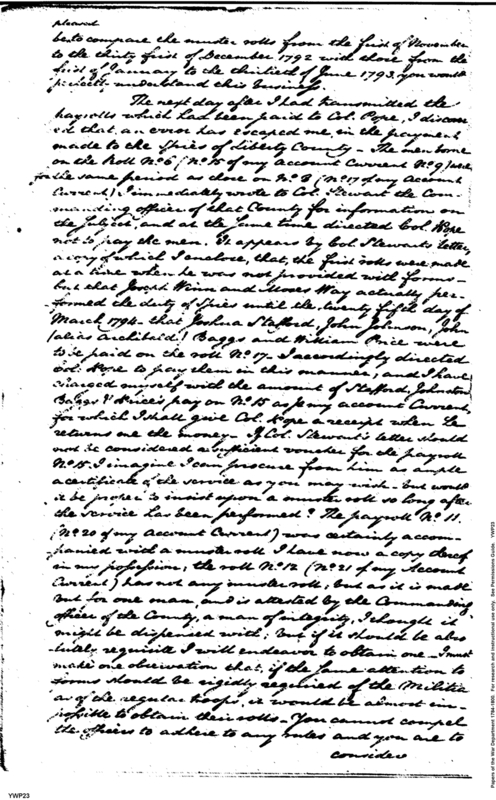 pleased
be to compare the muster rolls from the first of November
to the thirty first of December 1792 with those from the
first of January to the thirtieth of June 1793. you would
perfectly understand this business.
The next day after I had transmitted the
payrolls which has been paid to Col. Pope, I discov
ed that, an error has escaped me, in the payment
made to the Spies of Liberty County - The men borne
on the Roll No. 6 (No. 15 of my account Current No. 9)
for the same period as those on No. 8 (No. 17 of my Account
Current) I immediately wrote to Col. Stewart the Com
manding officer of that County for information on
the subject, and at the same time directed Col. Pope
not to pay the men. It appears by Col. Stewarts letter,
a copy of which I enclose, that, the first rolls were made
at a time when he was not provided with forms -
but that Joseph Winn and Moses Way actually per-
formed the duty of Spies until the twenty fifth day of
March 1794 - that Joshua Stafford, John Johnson, John
(alias Archibald) Baggs and William Price were
to be paid on the roll No. 17 - I accordingly directed
Col. Pope to pay them in this manner, and I have
charged myself with the amount of Stafford, Johnston
Baggs & Price's pay on No. 15 as p my account Current,
for which I shall give Col. Pope a receipt when he
returns me the money - If Col. Stewart's letter should
not be considered a sufficient voucher for the payroll
No. 15. I imagine I can procure from him as ample
a certificate of the service as you may wish - but would
it be proper to insist upon a muster roll so long after
the service has been performed? The payroll No. 11.
(No. 20 of my Account Current) was certainly accom-
panied with a muster roll I have now a copy thereof
in my possession; the roll No. 12 (No. 21 of my Account
Current) has not any muster roll; but as it is made
but for one man, and is attested by the Commanding
officer of the County, a man of integrity, I thought it
might be dispensed with; but if it should be abso
lutely requisite I will endeavor to obtain one - I must
make one observation that, if the same attention to
forms should be rigidly required of the Militia
as of the regular troops, it would be almost im-
possible to obtain their rolls - You cannot compel
the officers to adhere to any rules and you are to
consider
YWP23
Papers of the War Department 1784-1800. For research and instructional use only. See Permissions Guide. YWP23